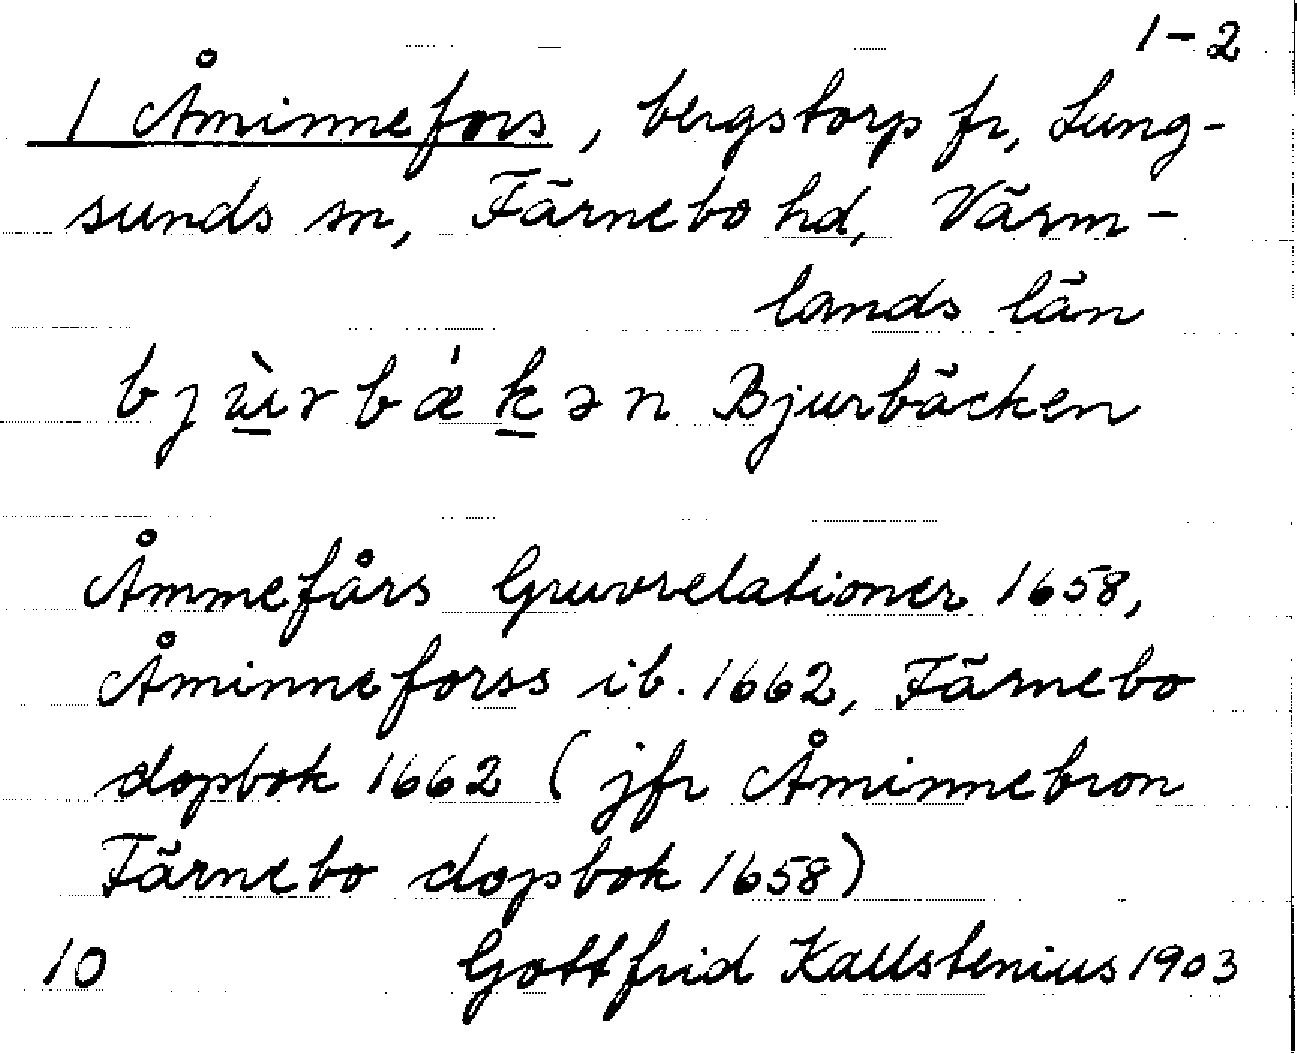 1-2
1 Åminnefors, bergstorp fr, Lung-
sunds sn, Färnebo hd, Värm-
lands län
bjùrbǽkən Bjurbäcken
Åmmefårs Gruvrelationer 1658,
Åminneforss ib. 1662, Färnebo
dopbok 1662 (jfr Åminnebron
Färnebo dopbok 1658)
10 Gottfrid Kallstenius 1903